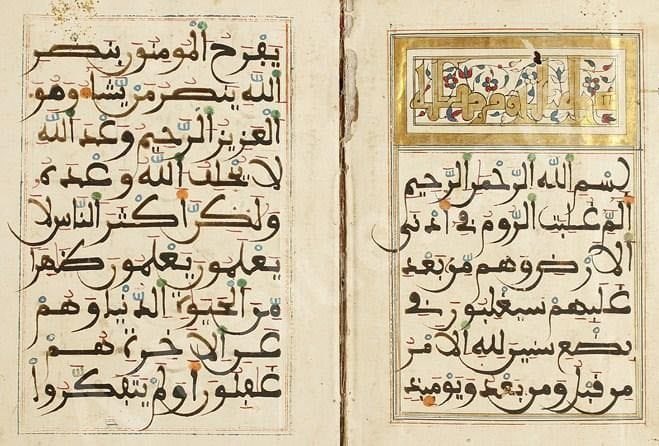 بسم الله الرحمن الرحيم
الم غلبت الروم في ادنى
الارض وهم من بعد
غلبهم سيغلبون في
بضع سنين لله الامر
من قبل ومن بعد ويومئذ
يفرح المومنون بنصر
الله ينصر من يشاء وهو
العزيز الرحيم وعد الله
لا يخلف الله وعده
ولكن أكثر الناس لا
يعلمون يعلمون ظهرا
من الحيوة الدنيا وهم
عن الاخرة هم
غفلون أولم يتفكروا